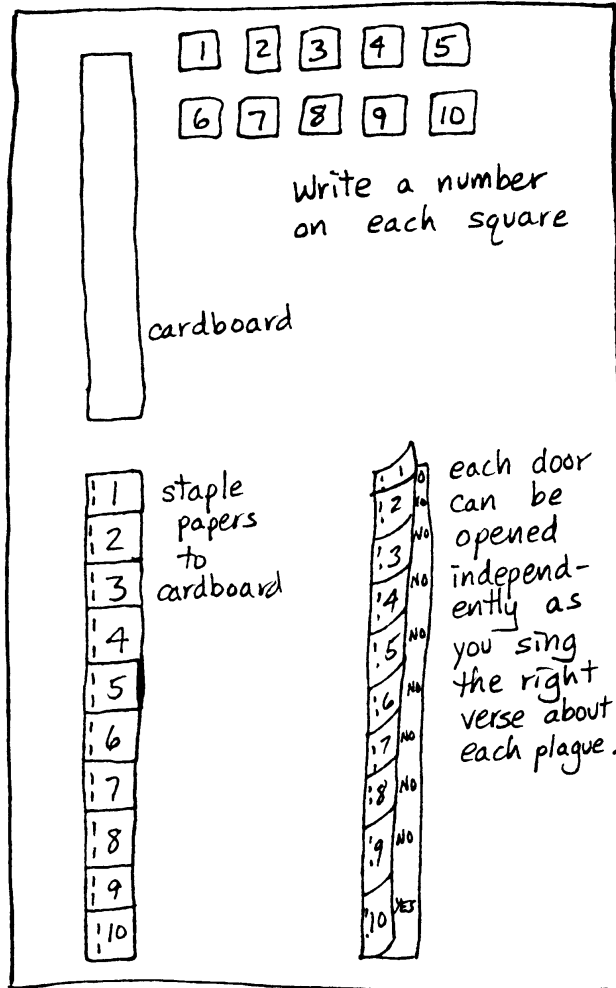 1 2 3 4 5
6 7 8 9 10
Write a number
on each square
cardboard
1
2
3
4
5
6
7
8
9
10
staple
papers
to
cardboard
1
2 NO
3 NO
4 NO
5 NO
6 NO
7 NO
8 NO
9 NO
10 YES
each door
can be
opened
independ-
ently as
you sing
the right
verse about
each plague.